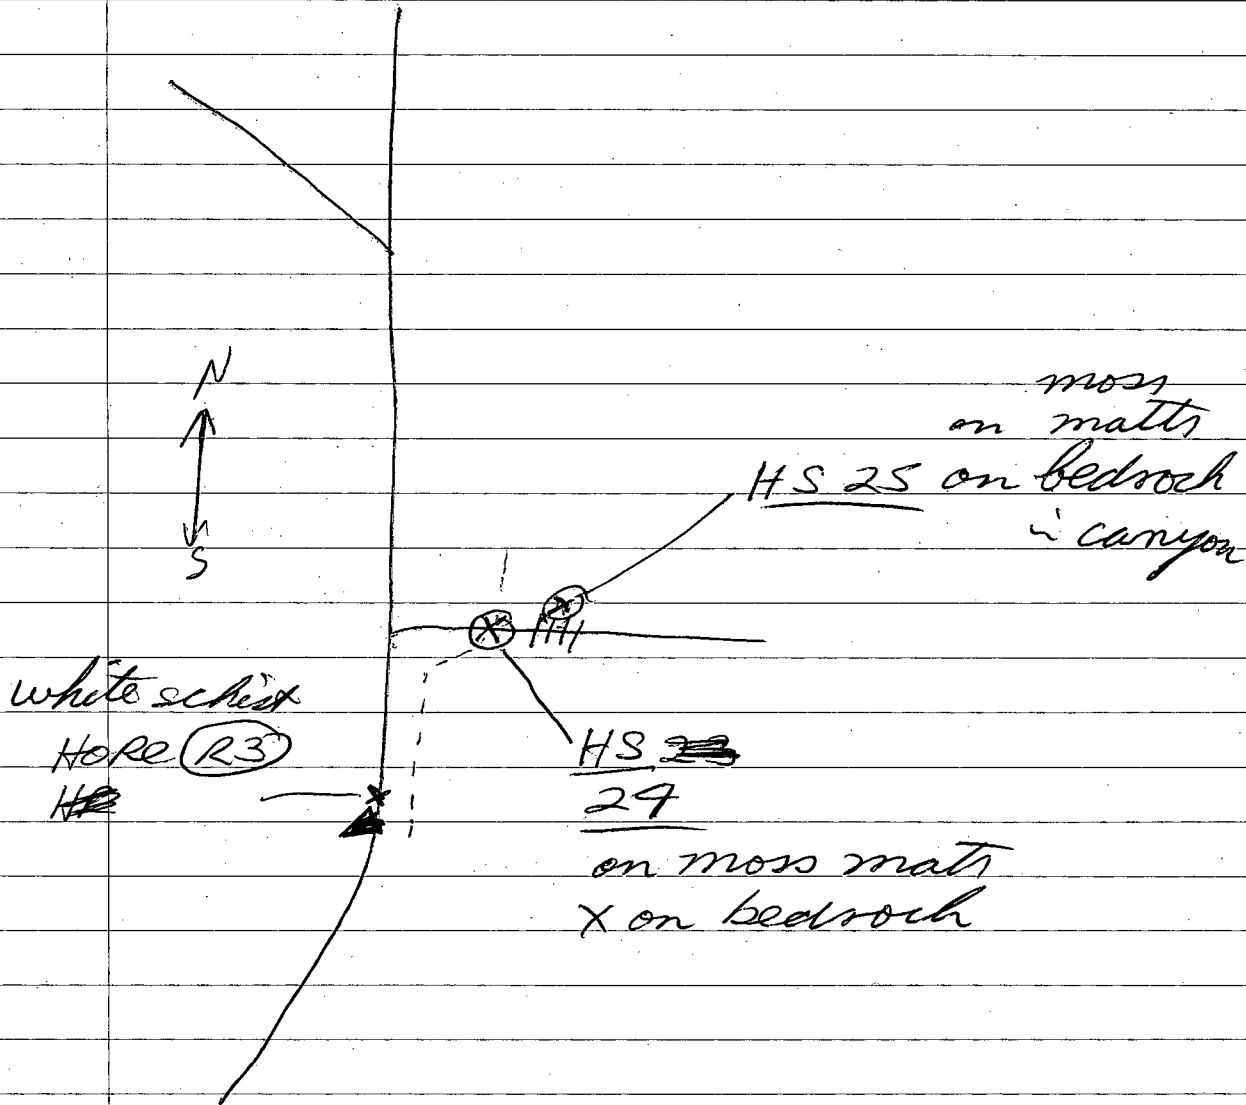 N
S
moss
on matts
HS 25 on bedrock
in canyon
white schist
HoRe R3
HS
24
on moss mats
X on bedrock